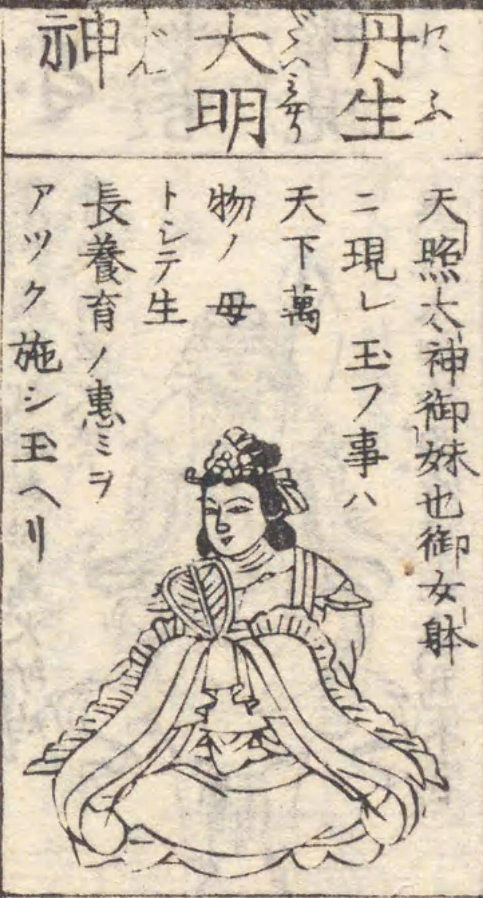 丹生
大明
神
にふ
だいミやう
じん
天照太神御妹也御女躰
ニ現レ玉フ事ハ
天下萬
物ノ母
トシテ生
長養育ノ惠ミヲ
アツク施シ玉ヘリ